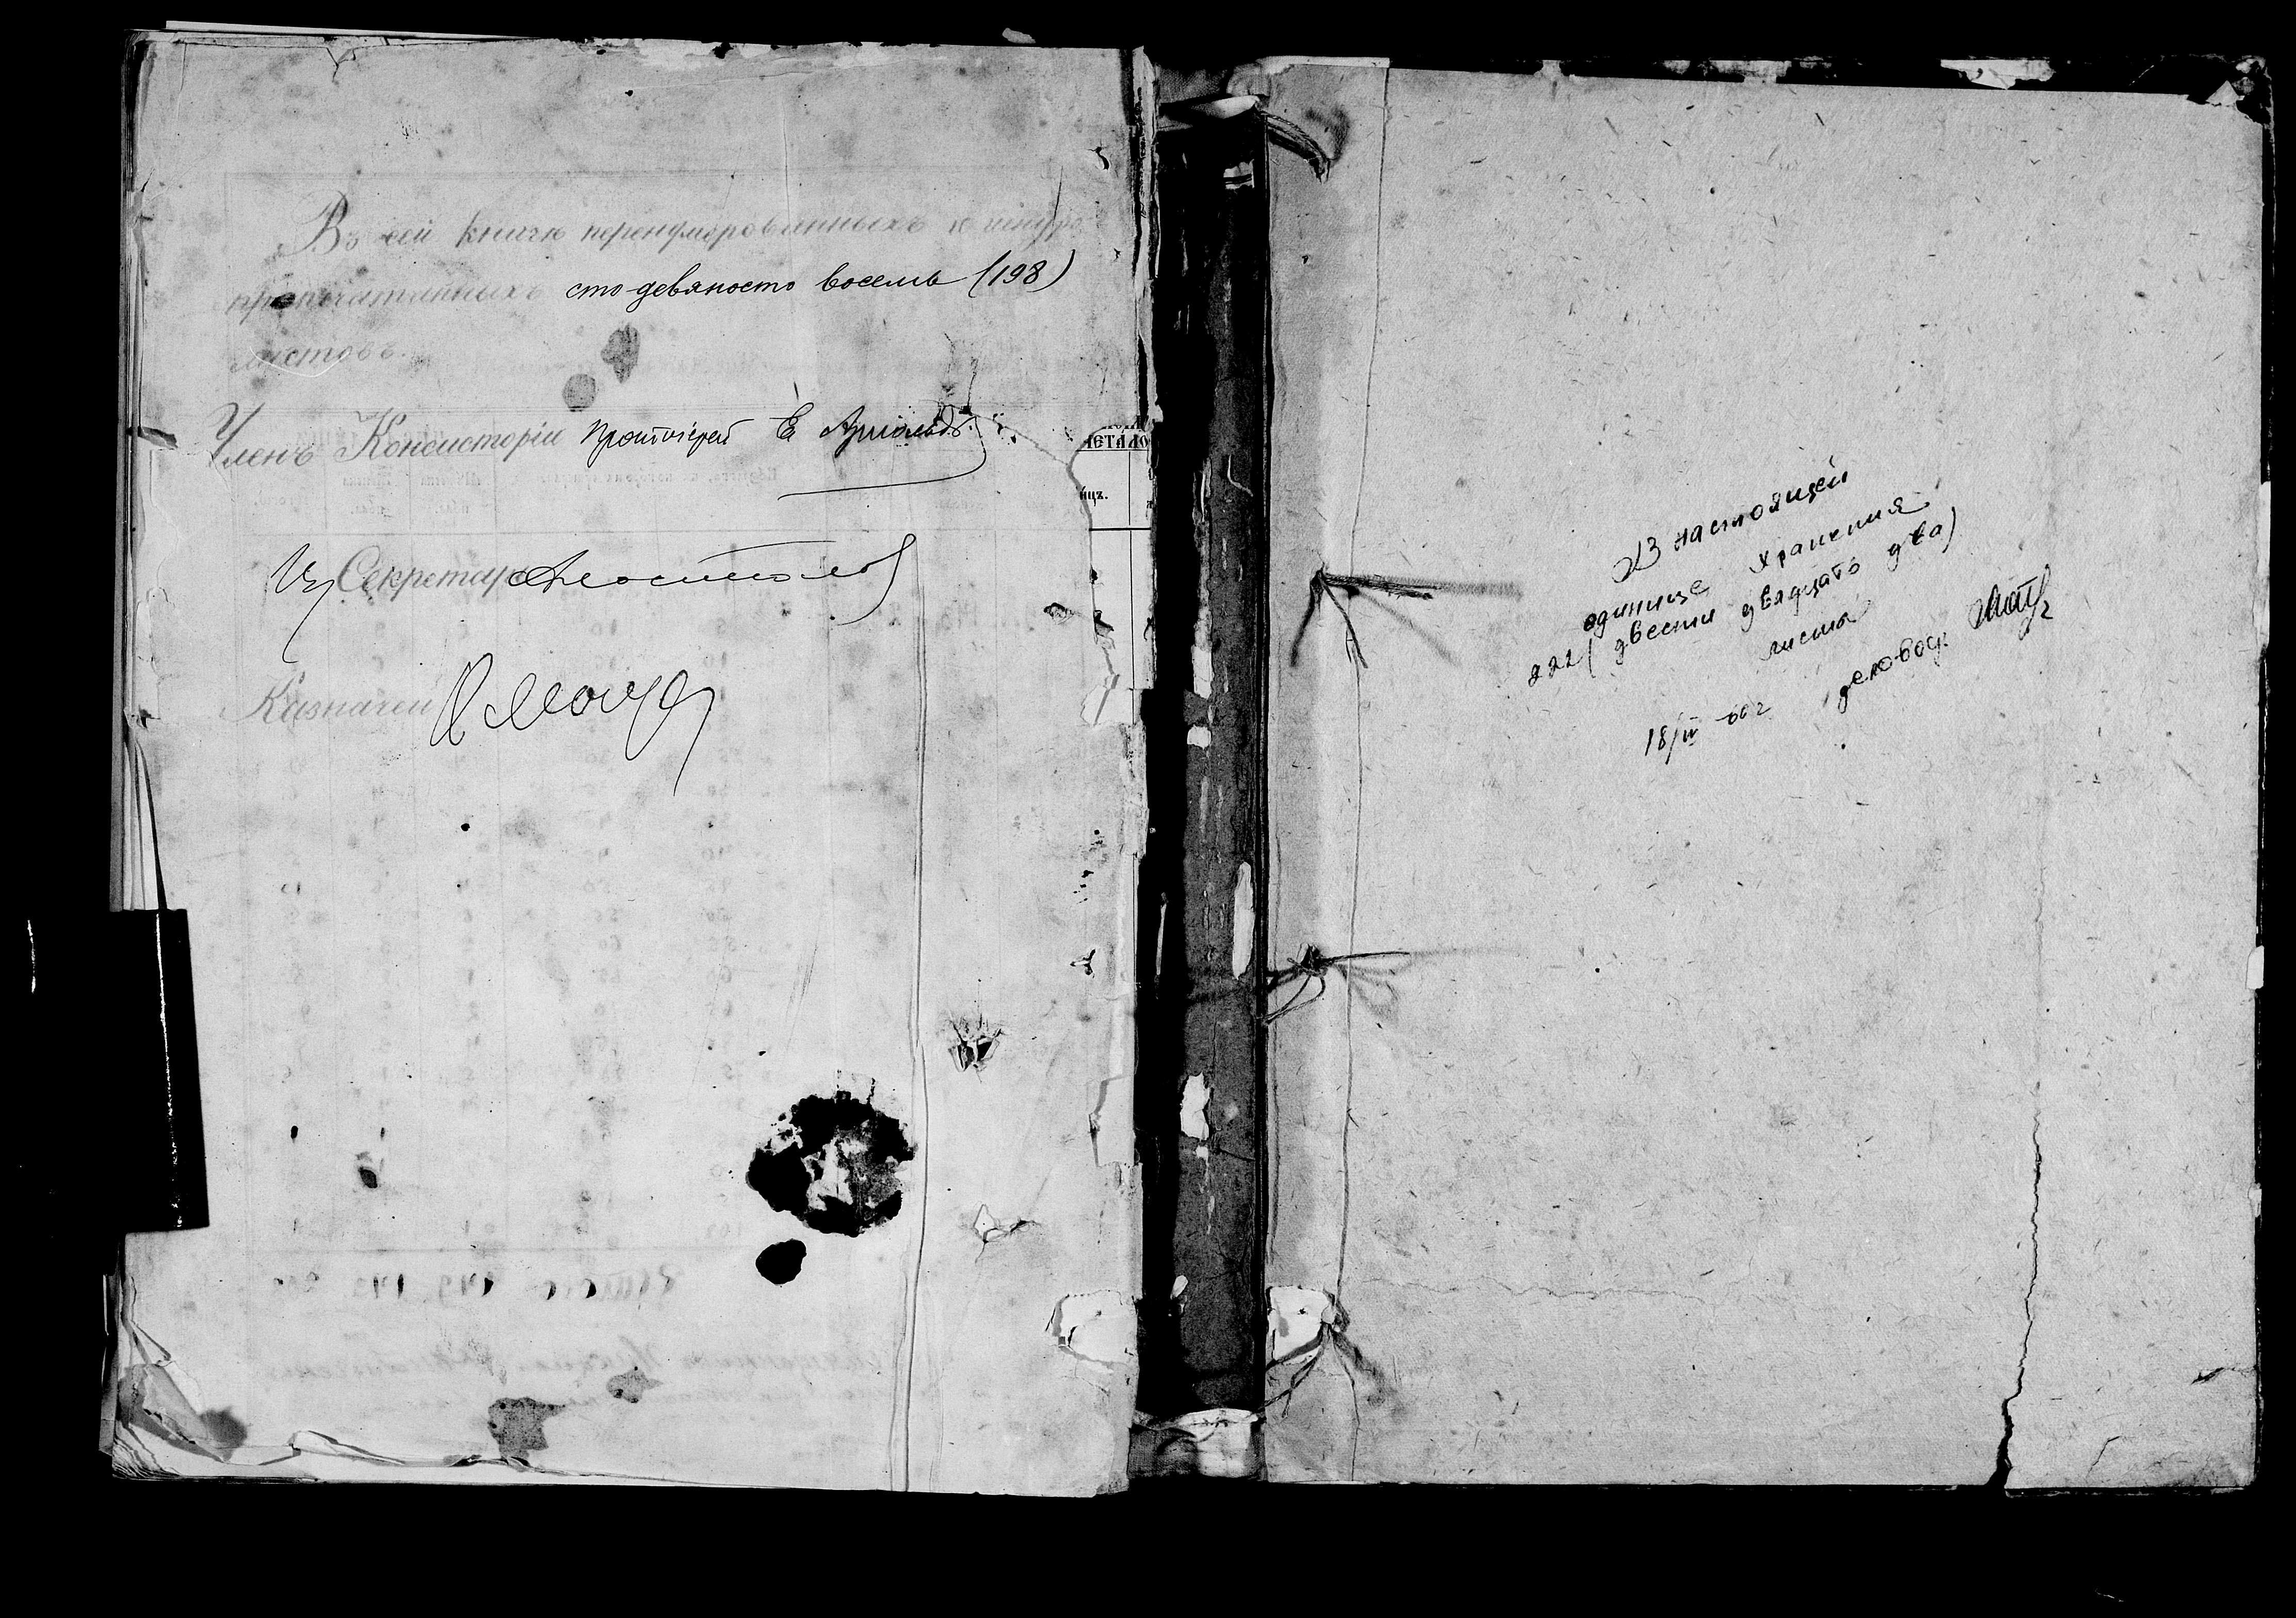 Въ сей книгѣ перенумерованныхъ и шнуро-
пропечатанныхъ сто девяносто восемь (198)
листовъ.
Членъ Консисторіи Протоіерей Е
Секретарь
Казначей
ЕТАЛО
ицъ.
В настоящей
единице хранения
222 (двести двадцать два)
листа
18/IV-60 г деловод.